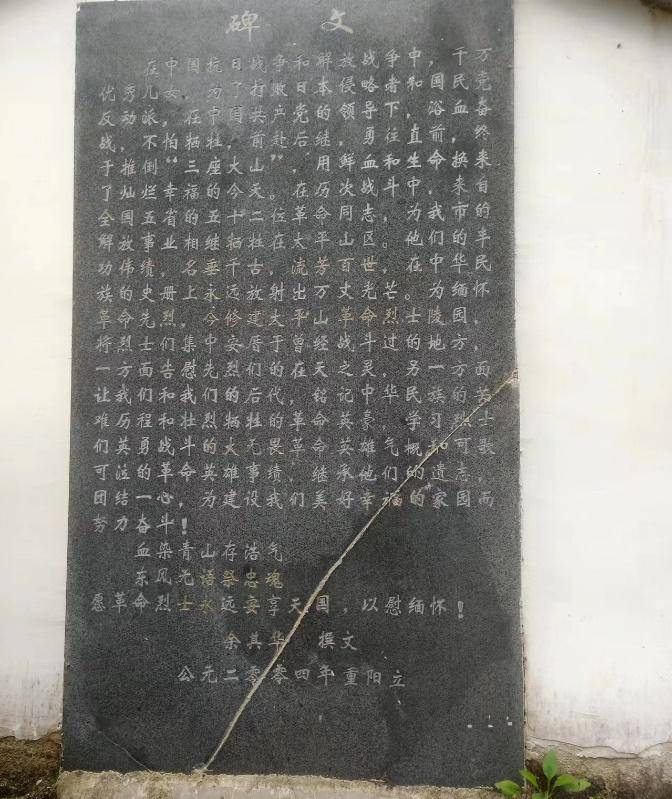 碑文
在中国抗日战争和解放战争中，千万
优秀儿女，为了打败日本侵略者和国民党
反动派，在中国共产党的领导下，浴血奋
战，不怕牺牲，前赴后继，勇往直前，终
于推倒“三座大山”，用鲜血和生命，换来
了灿烂幸福的今天。在历次战斗中，来自
全国五省的五十二位革命同志，为我市的
解放事业，相继牺牲在太平山区。他们的丰
功伟绩，名垂千古，流芳百世。在中华民
族的史册上，永远放射出万丈光芒。为缅怀
革命先烈，今修建太平山革命烈士陵园，
将烈士们集中安厝于曾经战斗过的地方，
一方面告慰先烈的在天之灵，另一方面
让我们和我们后代铭记中华民族的苦
难历程和壮烈牺牲的革命英豪，学习烈士
们英勇战斗的大无畏革命英雄气概和可歌
可泣的革命英雄事绩，继承他们的遗志，
团结一心，为建设我们美好幸福的家园而
努力奋斗！
血染青山存浩气
东风无语祭忠魂
愿革命烈士永远安享天国，以慰缅怀！
余其华 撰文
公元二零零四年重阳立